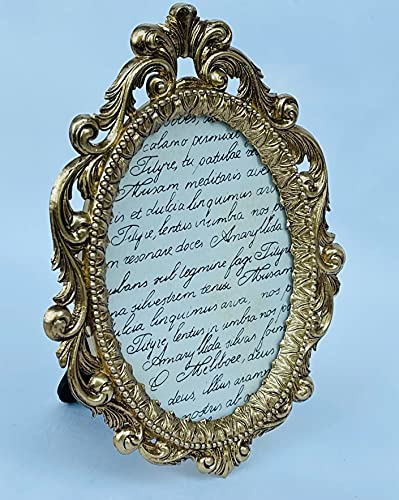 calamo permis
Tityre, tu patulae re
Musam meditaris ave
is et dulcia linquimus arv
Tityre, lentus in umbra nos p
em resonare doces Amaryllida
ubans sub legmine fagi Tityre
na silvestrem tenui Musam
dulcia linquimus arva, nos p
Tityre, lentus in umbra nos pa
Amaryllida silvas form
O Meliboee, deus
deus, illius aram
nostris ab